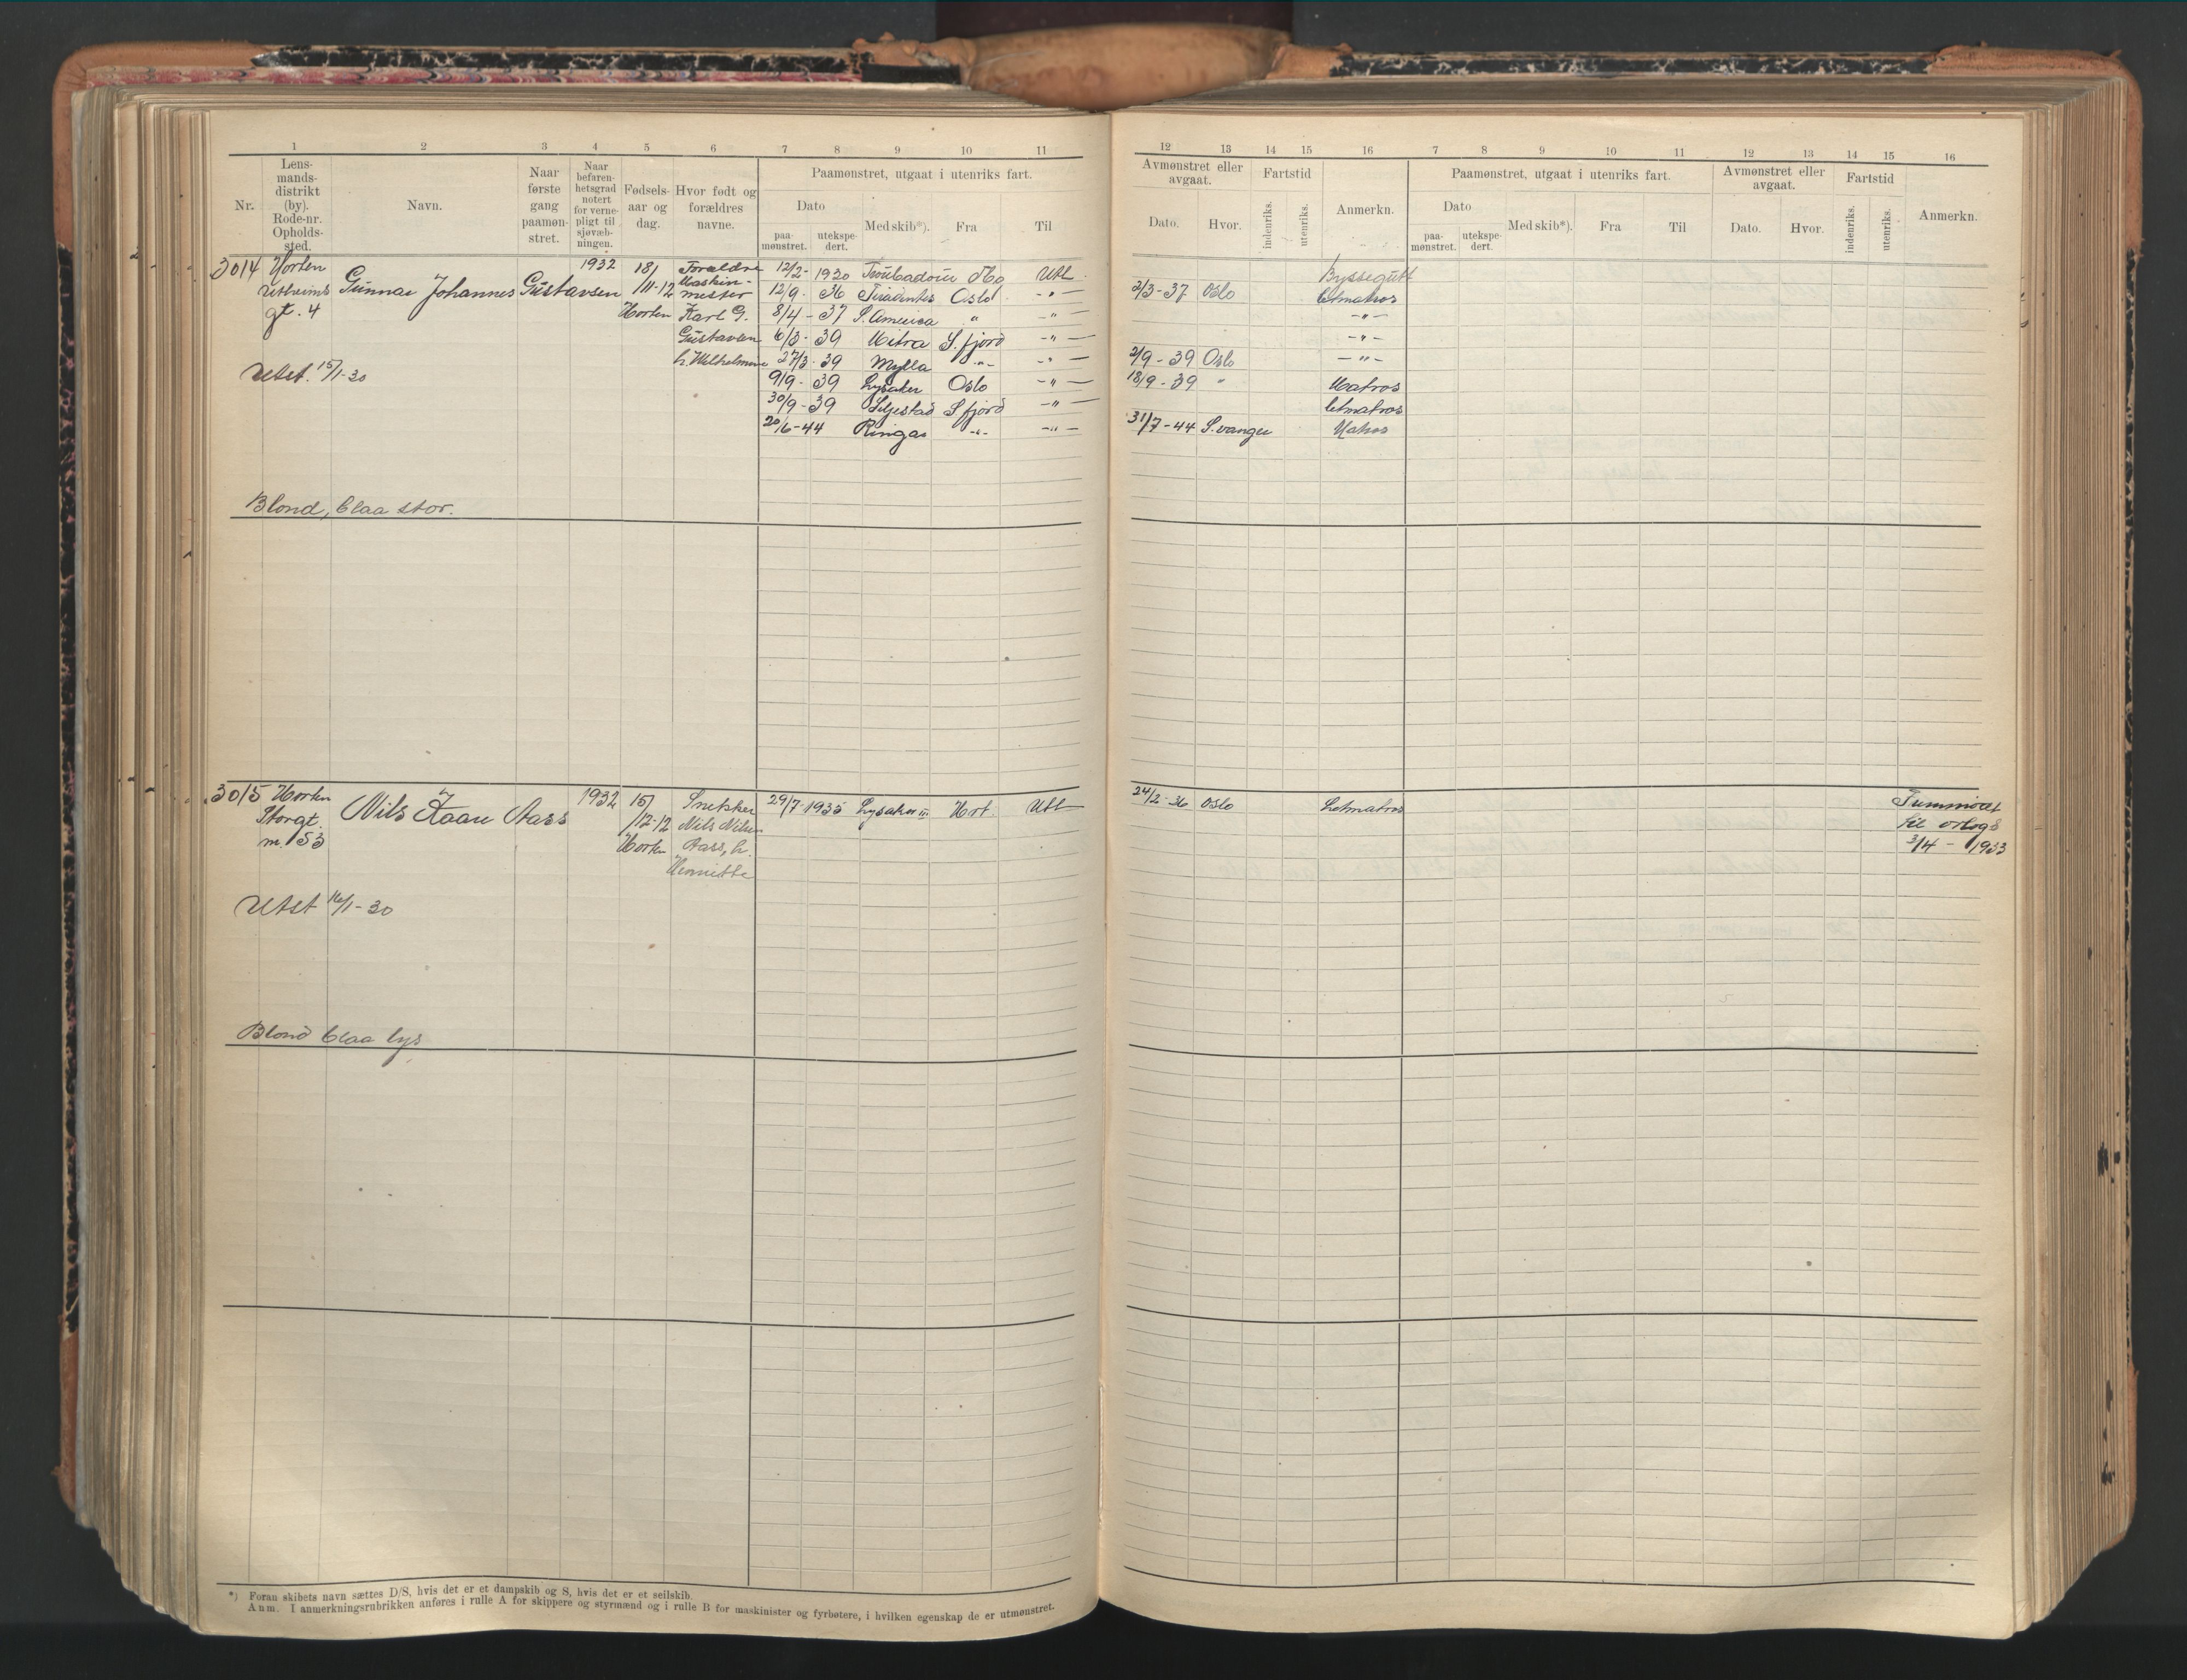 1 2 3 4 5 6 7 8 9 10 11
Nr.
Lens-
mands-
distrikt
(by).
Rode-nr.
Opholds-
sted.
Navn.
Naar
første
gang
paamøn-
stret.
Naar
befaren-
hetsgrad
notert
for verne-
pligt til
sjøvæb-
ningen.
Fødsels-
aar og
dag.
Hvor født og
forældres
navne.
Paamønstret, utgaat i utenriks fart.
Dato
paa-
mønstret.
utekspe-
dert.
Med skib*).
Fra
Til
12 13 14 15 16 7 8 9 10 11 12 13 14 15 16
Avmønstret eller
avgaat.
Dato.
Hvor.
Fartstid
indenriks.
utenriks.
Anmerkn.
Paamønstret, utgaat i utenriks fart.
Dato
paa-
mønstret.
utekspe-
dert.
Med skib*).
Fra
Til
Avmønstret eller
avgaat.
Dato.
Hvor.
Fartstid
indenriks.
utenriks.
Anmerkn.
3014 Horten
gt. 4
Gunnar Johannes Gustavsen
1932
18/
/11-12
Horten
Forældre
Maskin-
mester
Karl G.
Gustavsen
h. Wilhelmine
12/2- 1930 Troubadour Tbg Utl Byssegutt
12/9 - 36 Tiradentes Oslo -"- 2/3-37 Oslo Letmatros
8/4 - 37 S. America " -"- -"-
6/3 - 39 Mitra S.fjord -"- -"-
27/3 - 39 Mylla -"- -"- 2/9 - 39 Oslo -"-
9/9 - 39 Lysaker Oslo -"- 18/9 - 39 " Matros
30/9 - 39 Liljestad S.fjord -"- Letmatros
20/6 - 44 Ringar -"- -"- 31/7 - 44 S.vanger Matros
Utst. 15/1-30
Blond, blaa stor.
3015 Horten
Storgt.
m. 53
Nils Kaare Aass
1932
15/
/12-12
Horten
Snekker
Nils Nilsen
Aass, h.
Henriette
29/7-1935 Lysaker III Hort. Utl 24/2-36 Oslo Letmatros
til orlogs
3/4 - 1933
Utst 16/1-30
Blond blaa lys
*) Foran skibets navn sættes D/S, hvis det er et dampskib og S, hvis det er et seilskib.
Anm. I anmerkningsrubrikken anføres i rulle A for skippere og styrmænd og i rulle B for maskinister og fyrbøtere, i hvilken egenskap de er utmønstret.